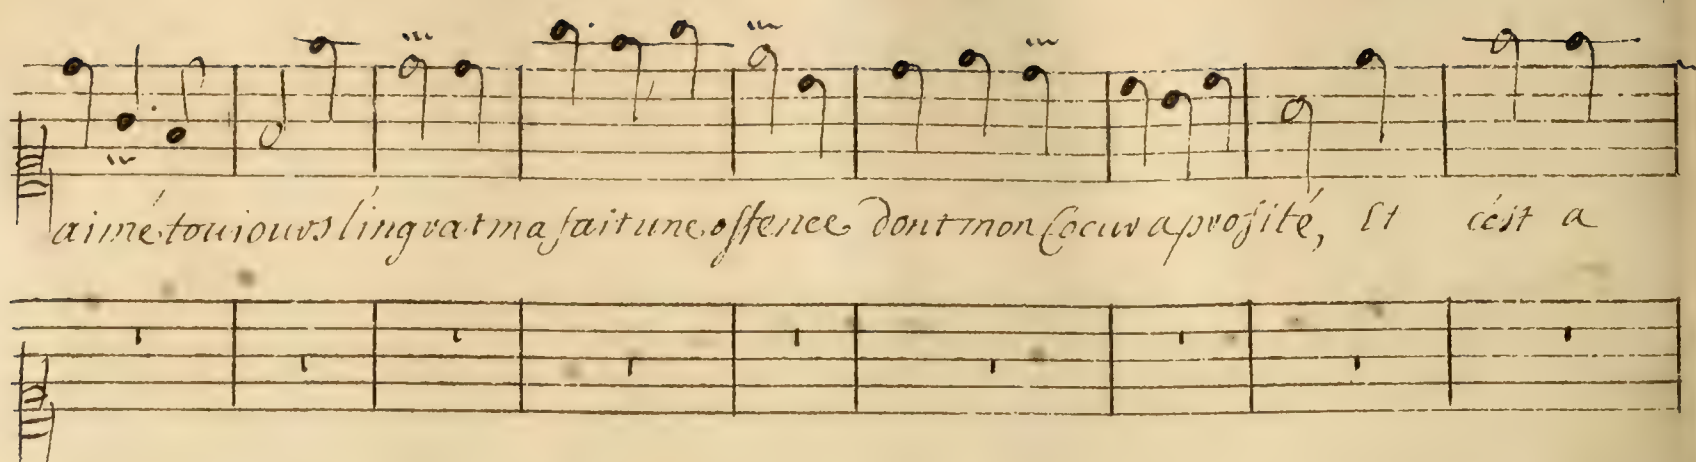 aimé toujours lingrat ma fait une offence dont mon Coeur a profité, Et cést a